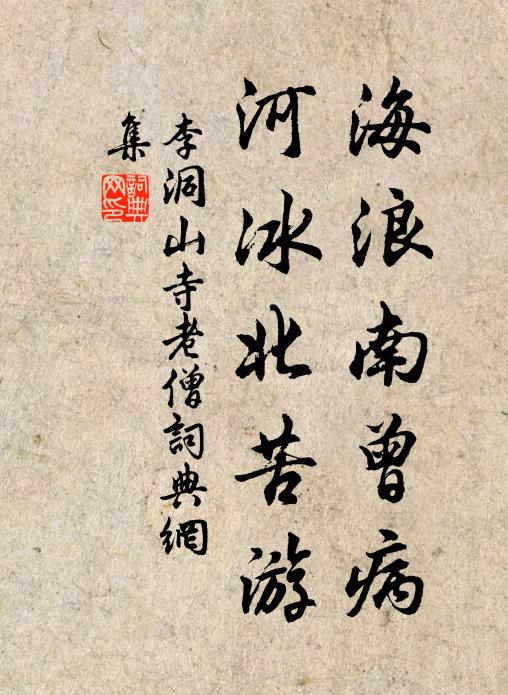 海浪南曾病
河冰北苦游
李洞山寺老僧詞典網
集
詞典
网印